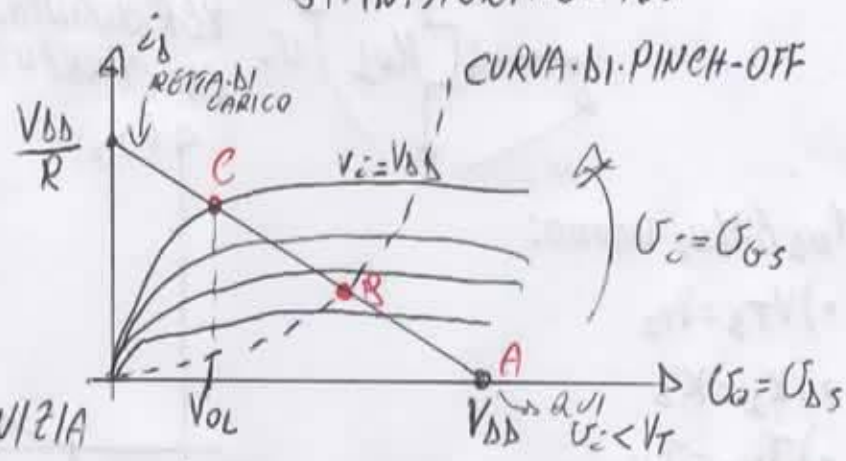 i_D
RETTA·DI
CARICO
CURVA·DI·PINCH-OFF
V_DD
R
C
v_i=V_DD
v_i=v_GS
B
A
V_OL
V_DD
QUI
v_i<V_T
v_o=v_DS